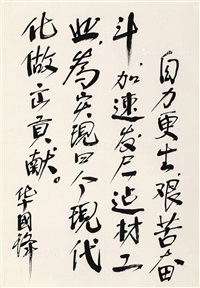 自力更生，艰苦奋
斗，加速发展建材工
业，为实现四个现代
化做出贡献。
华国锋